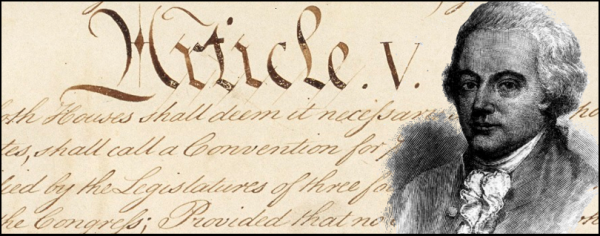 Article. V.
oth Houses shall deem it neceſsar
tes, shall call a Convention for
ied by the Legislatures of three fo
the Congress; Provided that no